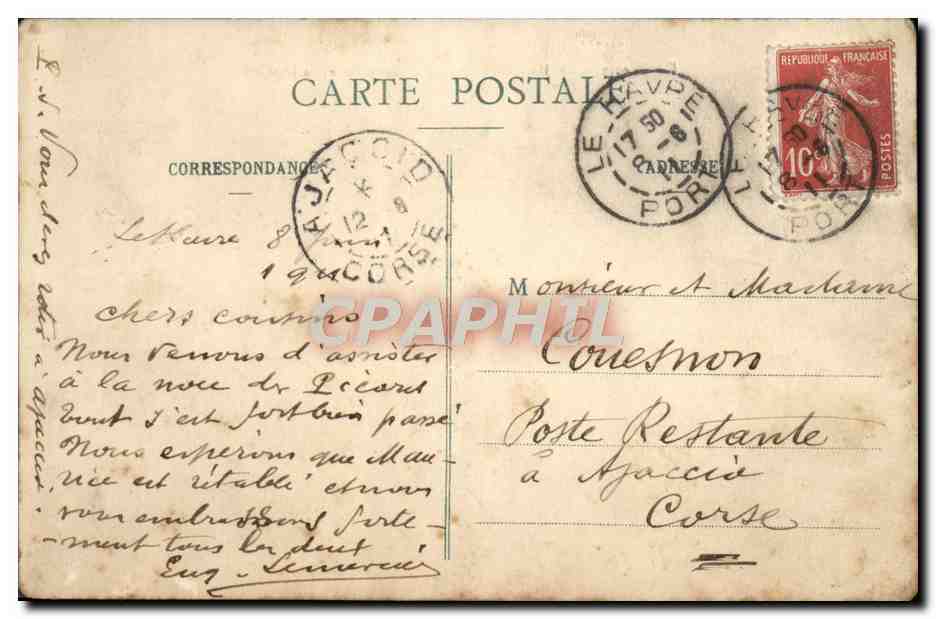 CARTE POSTALE
CORRESPONDANCE
ADRESSE
REPUBLIQUE FRANÇAISE
10
POSTES
LE HAVRE
17 50
8 - 6
11
PORT
LE HAVRE
17 50
8 - 6
11
PORT
AJACCIO
*
12 6
CORSE
Le Havre 8 juin
1911
chers cousins
Nous venons d'assister
à la noce des Picard
tout s'est fort bien passé
Nous espérons que Mau-
rice est rétabli et nous
vous embrassons forte-
ment tous les deux
Eug. Lemercier
Monsieur et Madame
Couesnon
Poste Restante
à Ajaccio
Corse
CPAPHIL